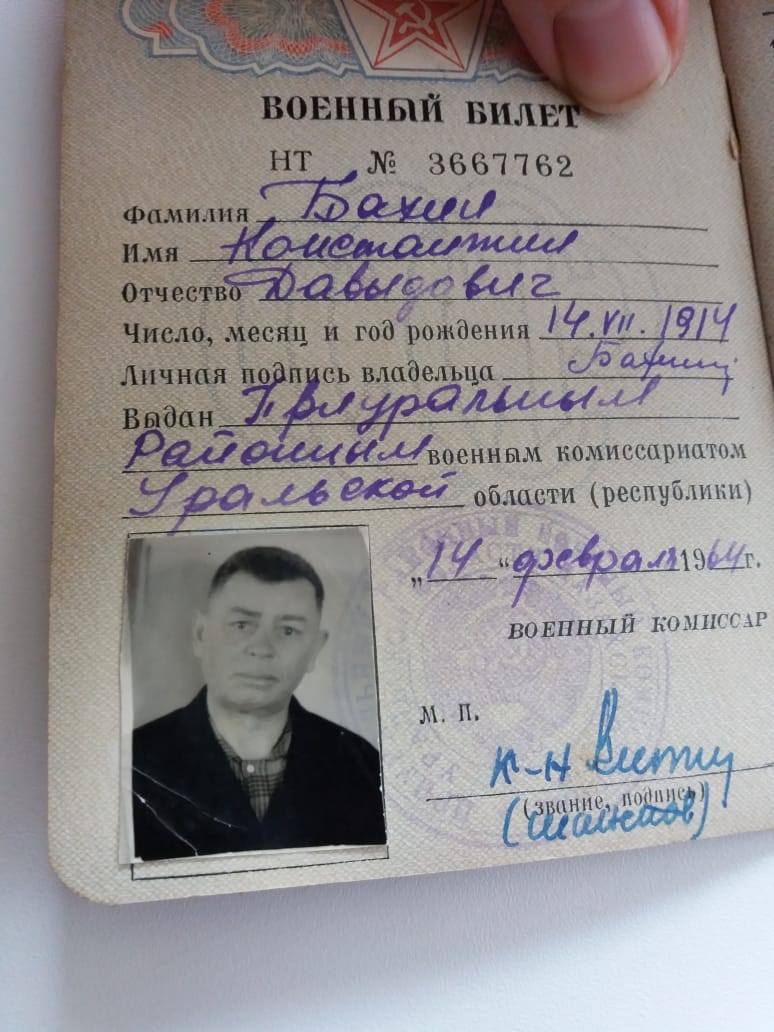 ВОЕННЫЙ БИЛЕТ
НТ № 3667762
Фамилия Бахин
Имя Константин
Отчество Давыдович
Число, месяц и год рождения 14.VII.1914
Личная подпись владельца
Выдан Приуральным
Районным военным комиссариатом
Уральской области (республики)
„14“ февраля 1964 г.
ВОЕННЫЙ КОМИССАР
М. П.
к-н
(звание, подпись)